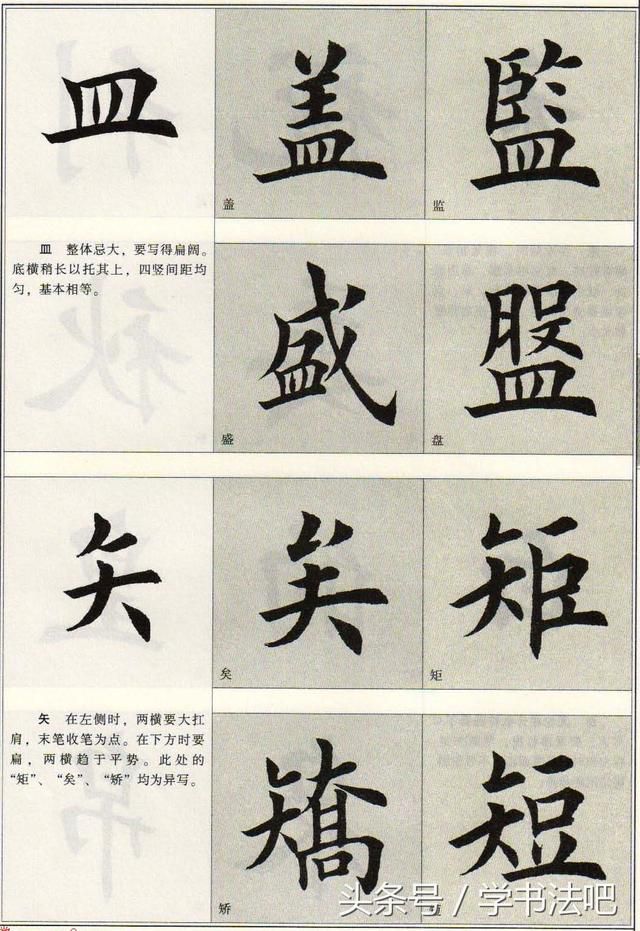 皿 盖 監
盖 监
皿 整体忌大，要写得扁阔。
底横稍长以托其上，四竖间距均
匀，基本相等。
盛 盤
盛 盘
矢 矣 矩
矣 矩
矢 在左侧时，两横要大扛
肩，末笔收笔为点。在下方时要
扁，两横趋于平势。此处的
“矩”、“矣”、“矫”均为异写。
矯 短
矫 短
头条号 / 学书法吧